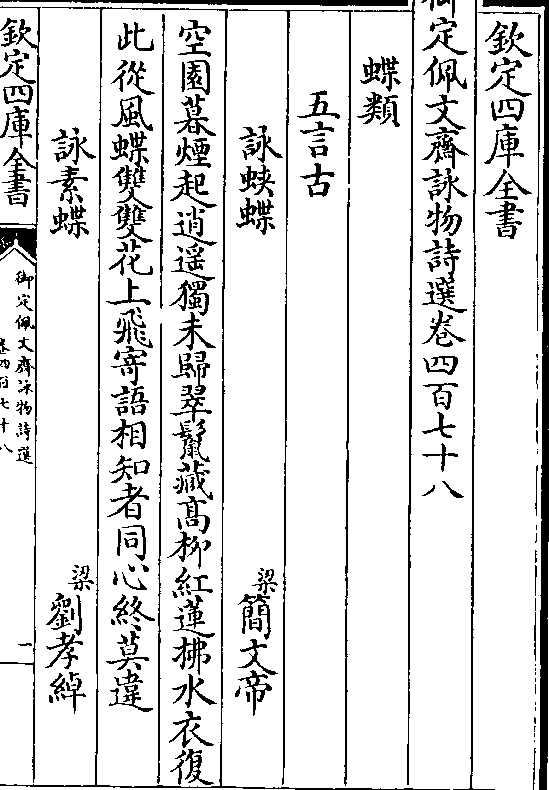 欽定四庫全書
御定佩文齋詠物詩選卷四百七十八
蝶類
五言古
詠蛺蝶 梁簡文帝
空園暮煙起逍遥獨未歸翠鬣藏髙柳紅蓮拂水衣復
此從風蝶雙雙花上飛寄語相知者同心終莫違
詠素蝶 梁劉孝綽
欽定四庫全書
御定佩文齋詠物詩選
卷四百七十八
一